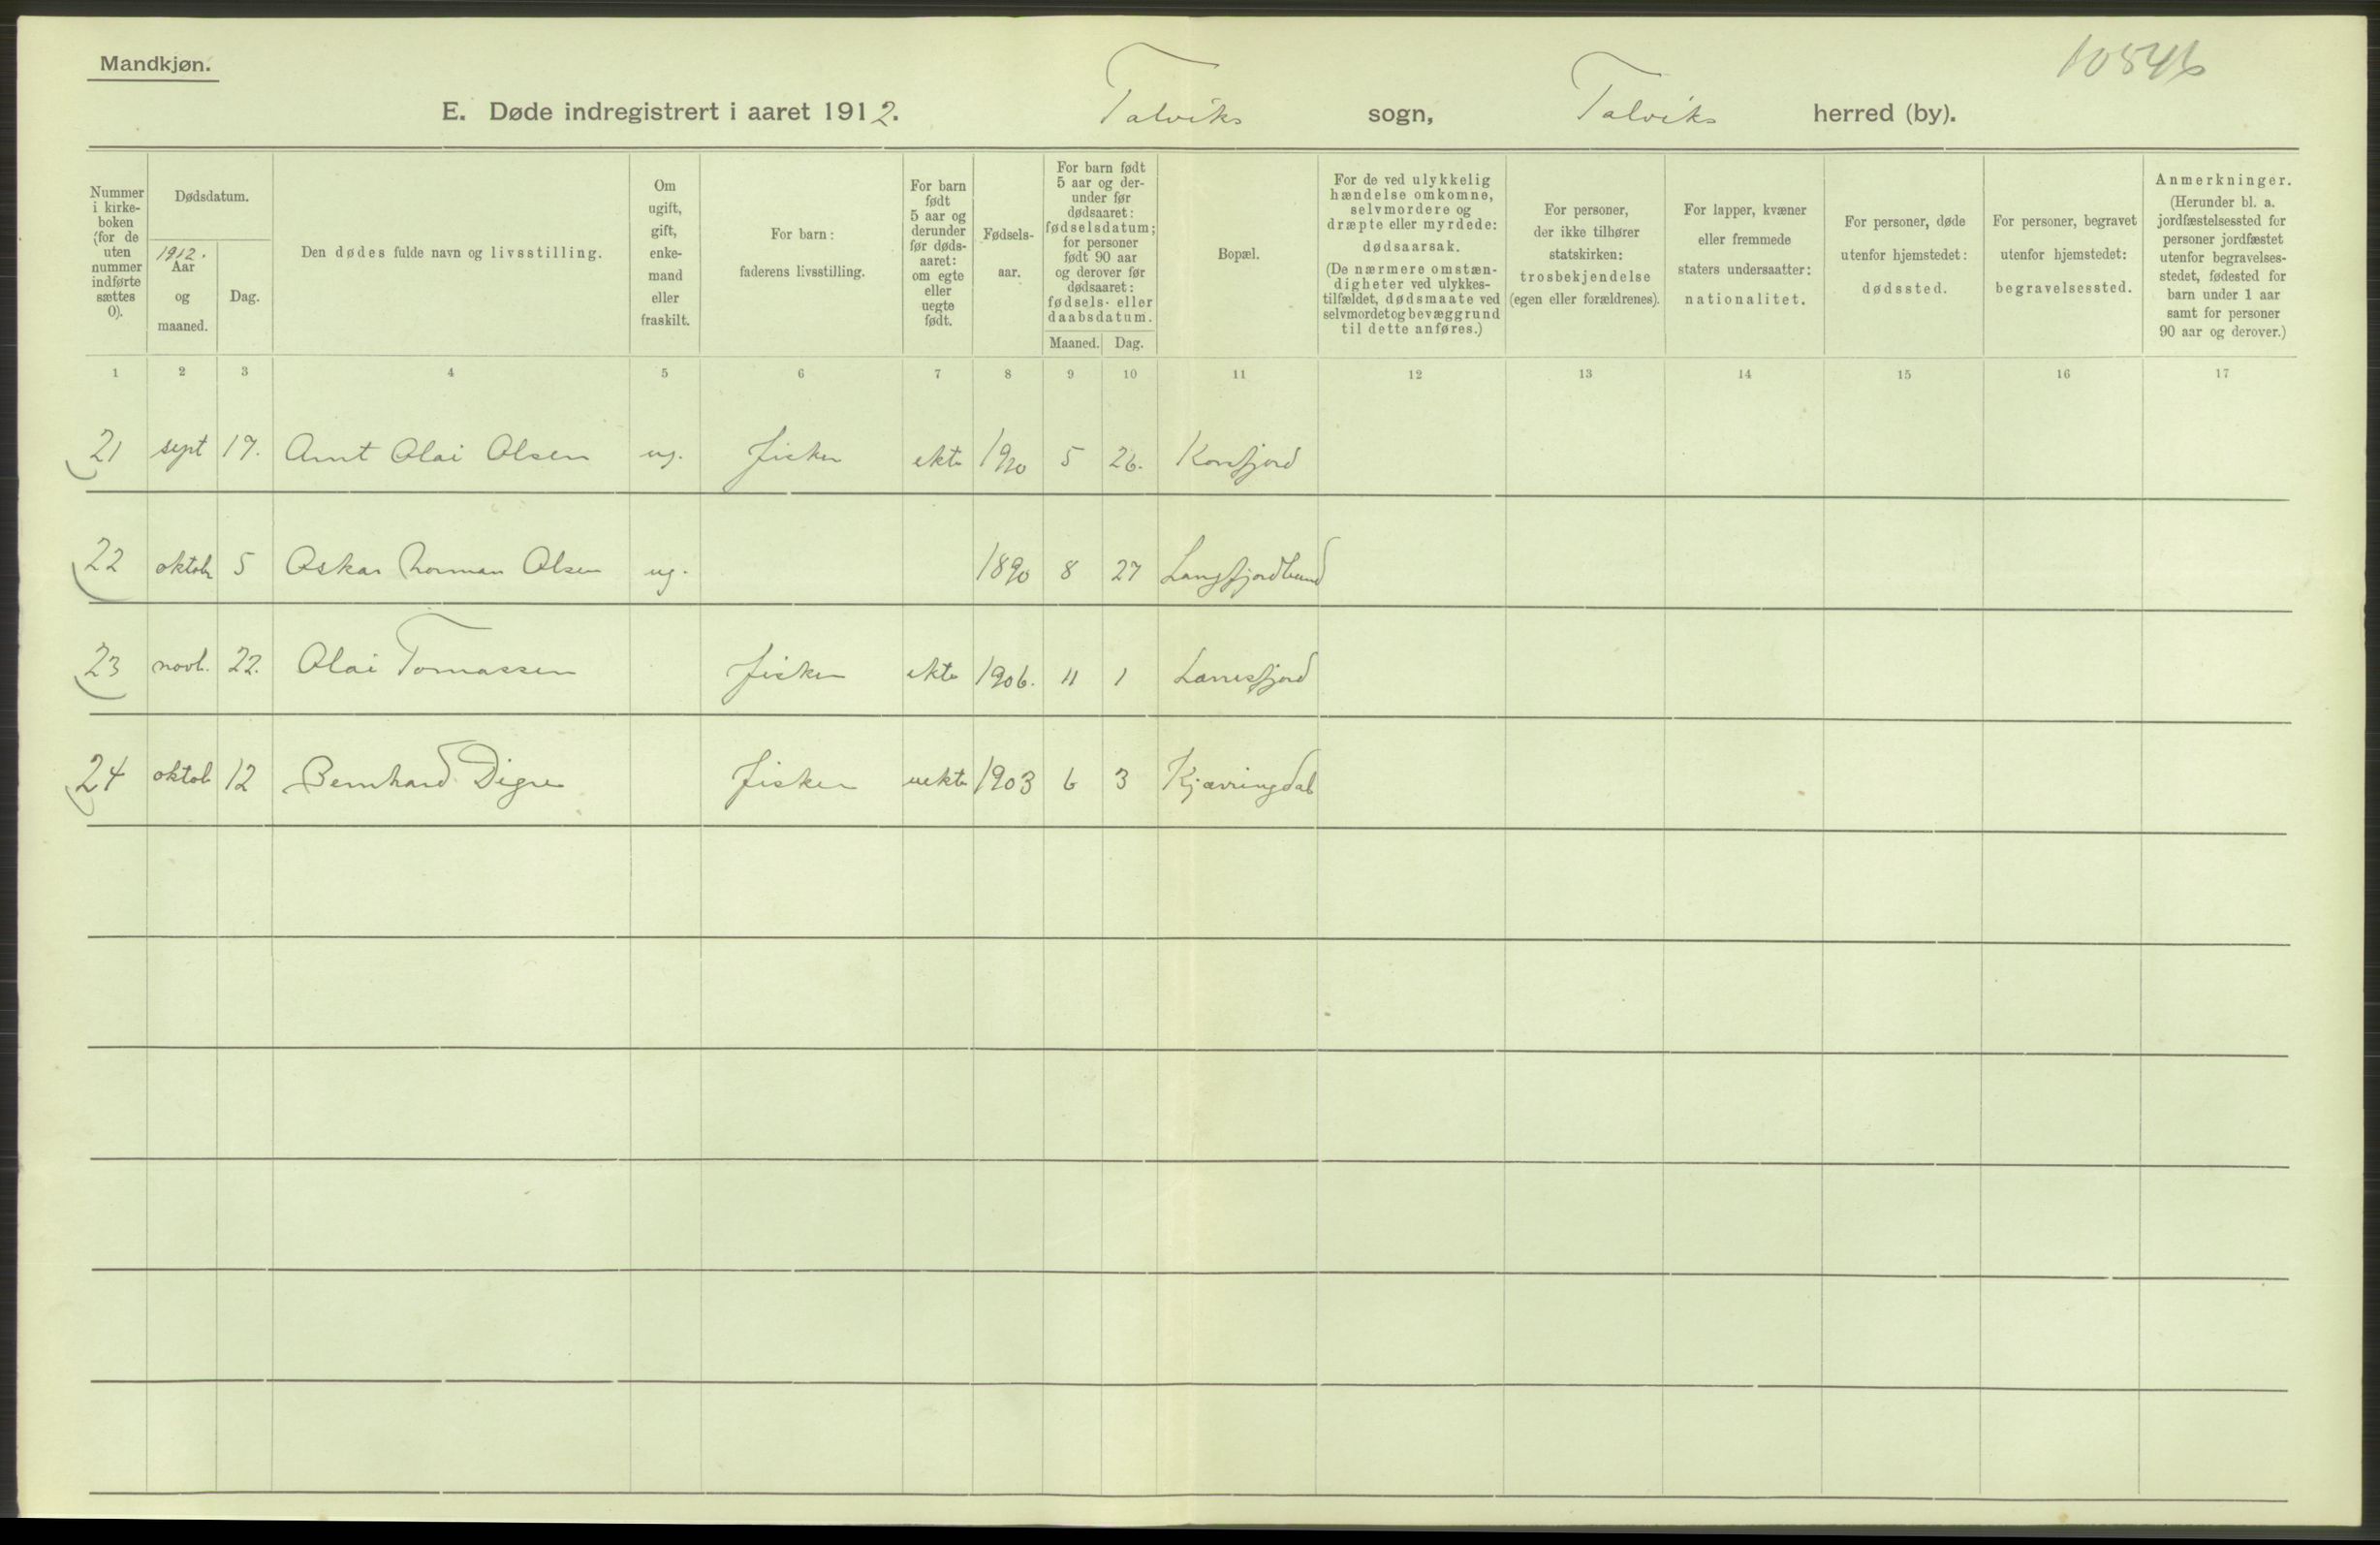 Mandkjøn.
10546
E. Døde indregistrert i aaret 1912. Talviks sogn, Talviks herred (by).
Nummer i kirke-boken (for de uten nummer indførte sættes 0).
Dødsdatum.
1912.
Aar og maaned.
Dag.
Den dødes fulde navn og livsstilling.
Om ugift, gift, enke-mand eller fraskilt.
For barn: faderens livsstilling.
For barn født 5 aar og derunder før døds-aaret: om egte eller uegte født.
Fødsels-aar.
For barn født 5 aar og der-under før dødsaaret: fødselsdatum; for personer født 90 aar og derover før dødsaaret: fødsels- eller daabsdatum.
Maaned. Dag.
Bopæl.
For de ved ulykkelig hændelse omkomne, selvmordere og dræpte eller myrdede: dødsaarsak. (De nærmere omstæn-digheter ved ulykkes-tilfældet, dødsmaate ved selvmordet og bevæggrund til dette anføres.)
For personer, der ikke tilhører statskirken: trosbekjendelse (egen eller forældrenes).
For lapper, kvæner eller fremmede staters undersaatter: nationalitet.
For personer, døde utenfor hjemstedet: dødssted.
For personer, begravet utenfor hjemstedet: begravelsessted.
Anmerkninger. (Herunder bl. a. jordfæstelsessted for personer jordfæstet utenfor begravelses-stedet, fødested for barn under 1 aar samt for personer 90 aar og derover.)
1 2 3 4 5 6 7 8 9 10 11 12 13 14 15 16 17
21 sept 17. Arnt Olai Olsen ug. fisker ekte 1910 5 26. Korsfjord
22 oktob 5 Oskar Norman Olsen ug. 1890 8 27 Langfjordbund
23 novb. 22. Olai Tomassen fisker ekte 1906. 11 1
24 oktob 12 Bernhard Digre fisker uekte 1903 6 3 Kjærringdal